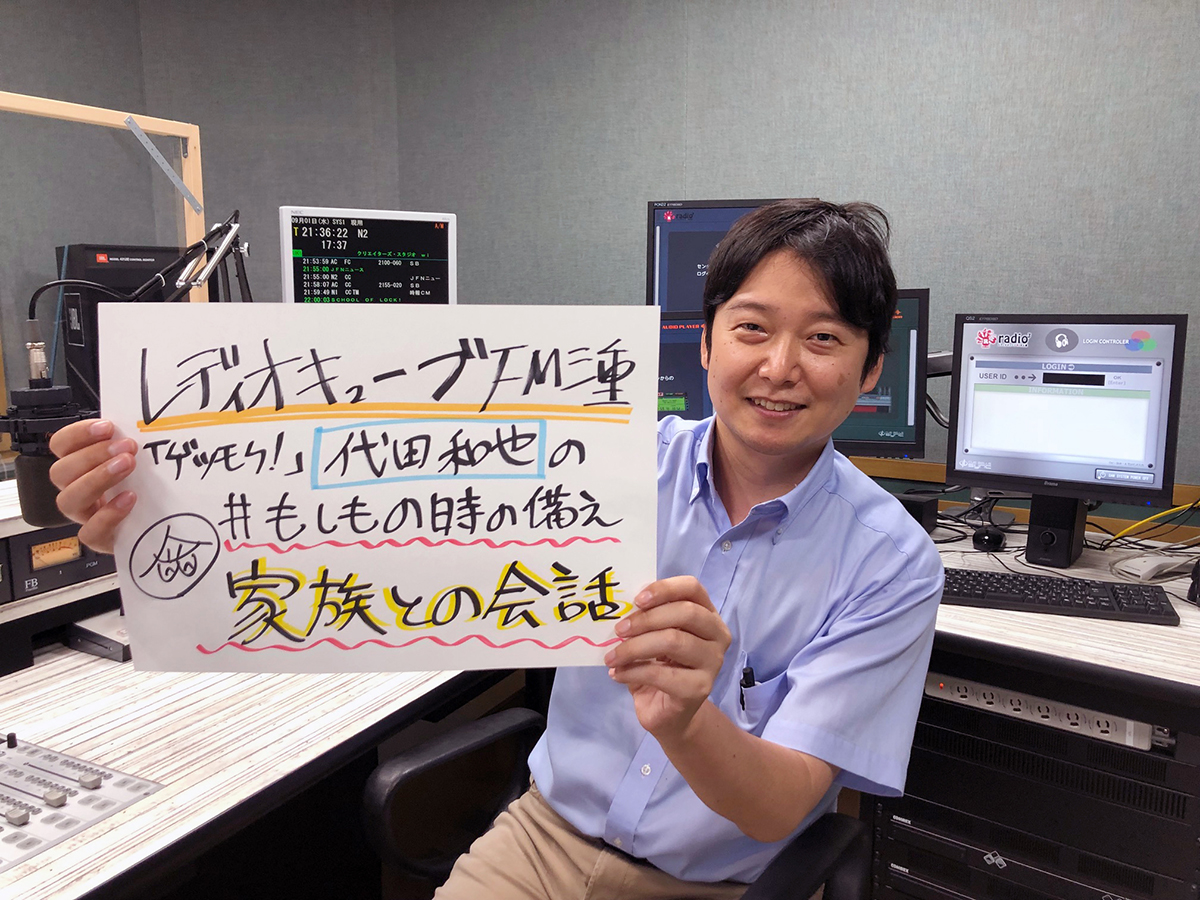 レディオキューブFM三重
「ゲツモク!」代田和也の
#もしもの時の備え
備
家族との会話
09月01日(水) SYS1 現用
T 21:36:22 N2
17:37
クリエイターズ・スタジオ
21:53:59 AC FC 2100-060 SB
21:55:00 JFNニュース
21:55:00 N2 CC JFNニュー
21:58:07 AC CC 2155-020 SB
21:59:49 N1 CCTM 時報CM
22:00:03 SCHOOL OF LOCK!
JBL
FB
radio³
AUDIO PLAYER
radio³
LOGIN CONTROLER
LOGIN
USER ID
OK